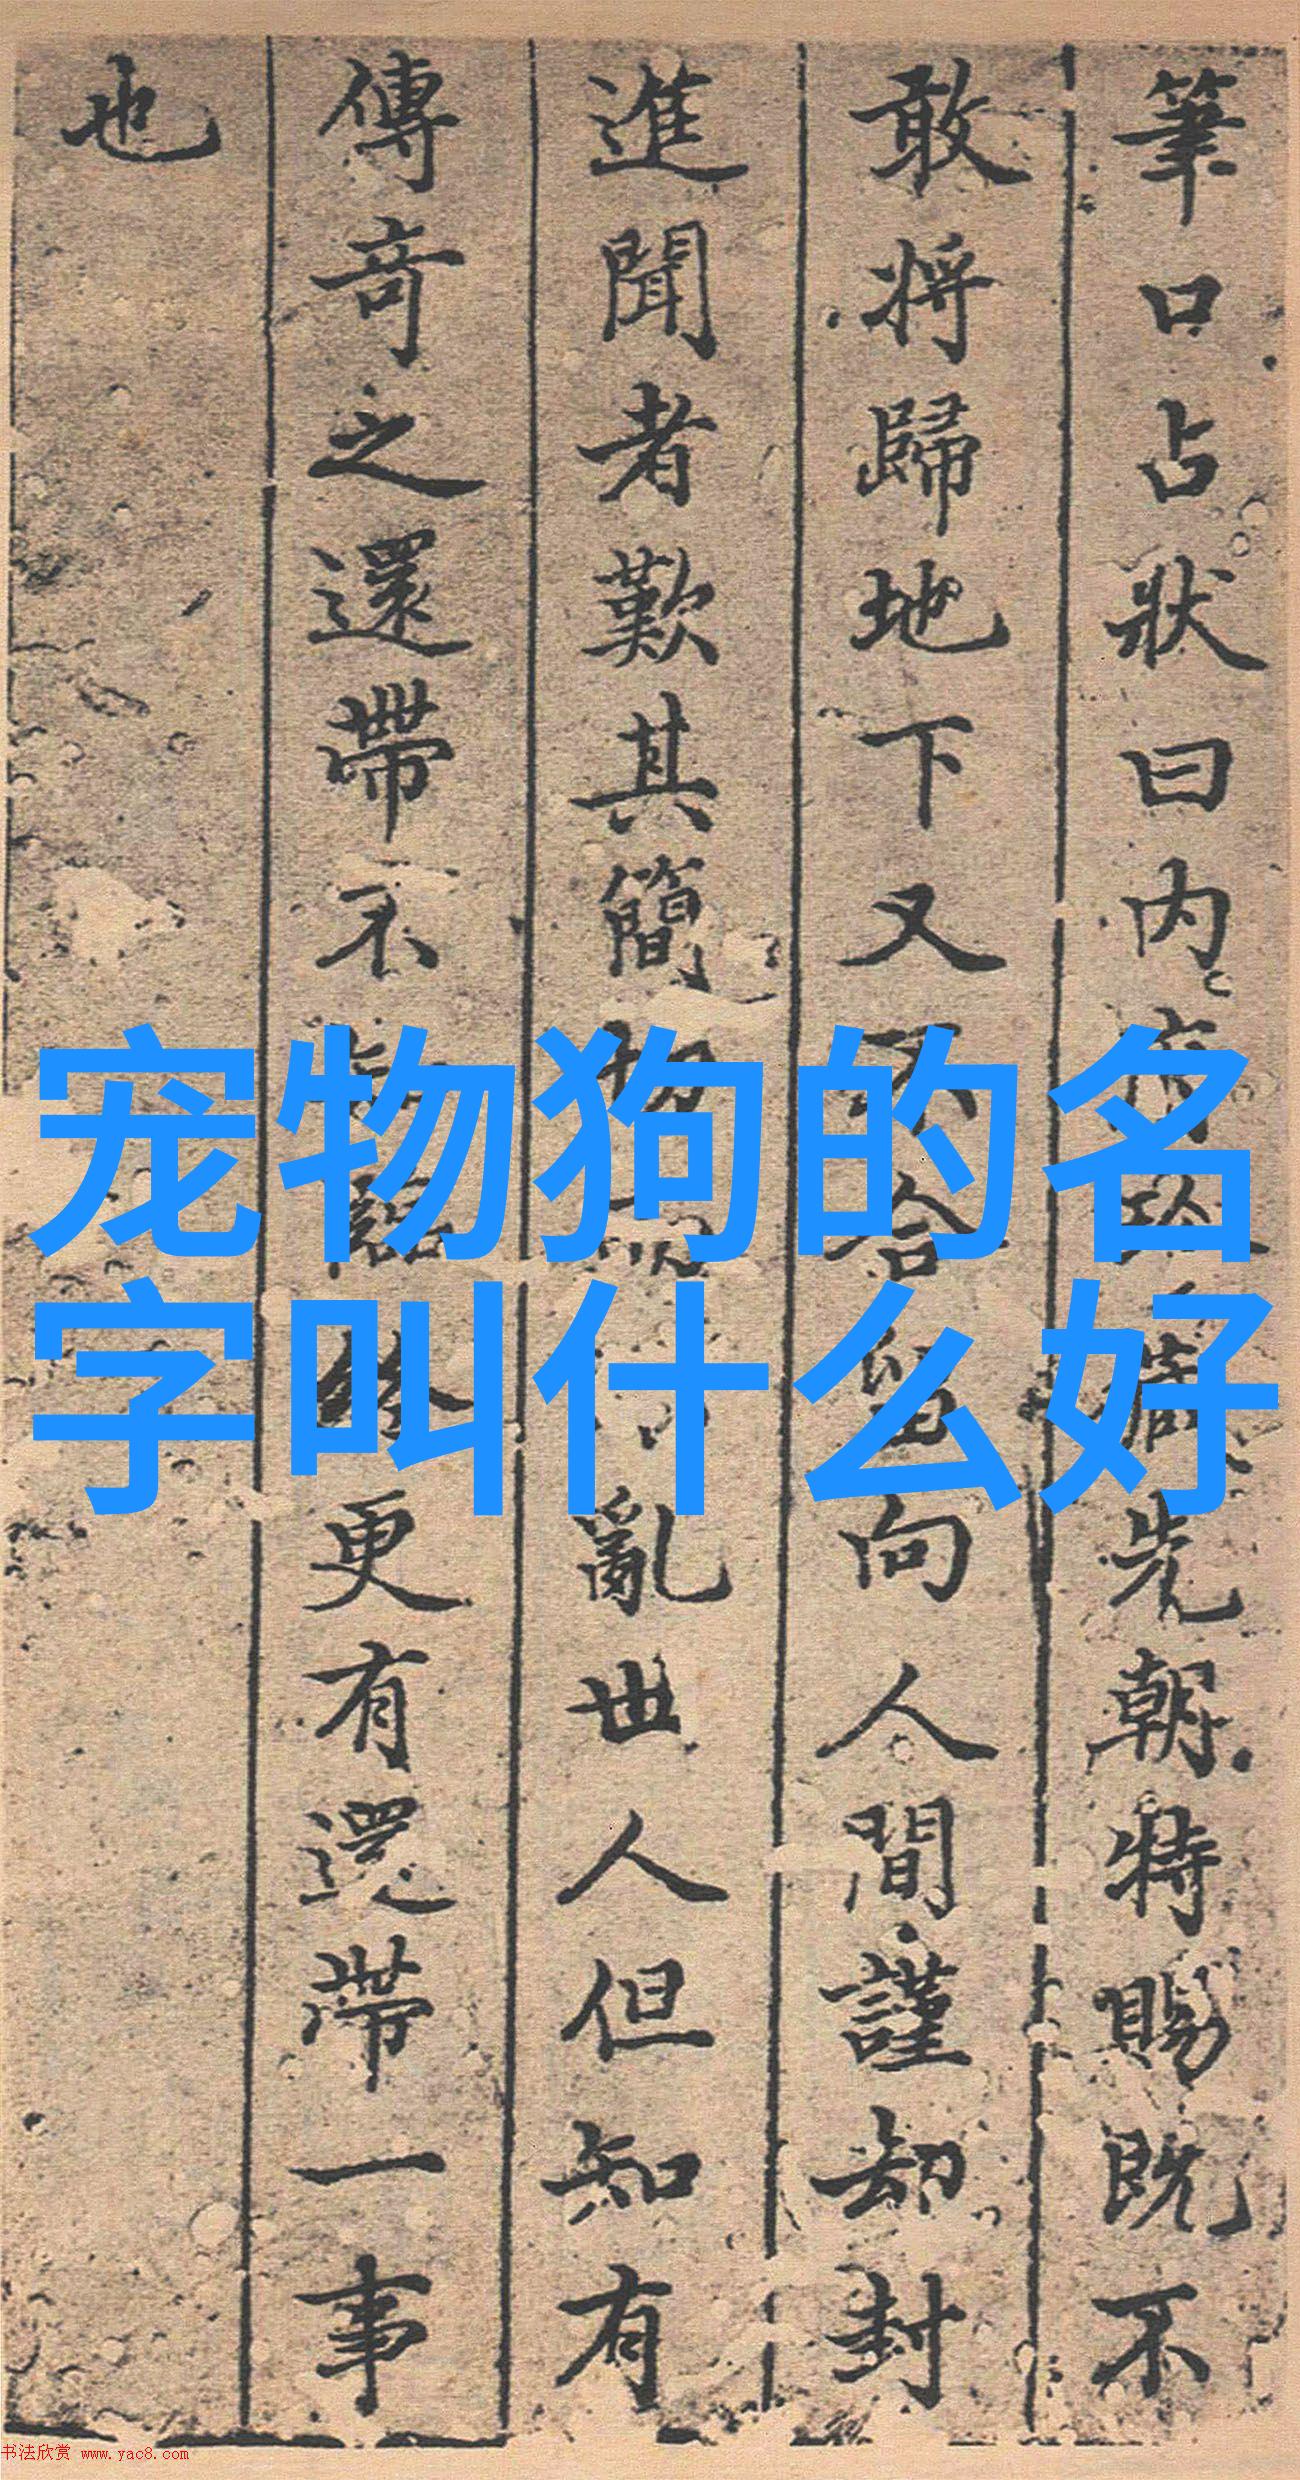 筆口占狀曰内
先朝特賜既不
敢将歸地下又不合留向人間謹却封
進聞者歎其簡
亂世人但知有
傳奇之還帶不
更有還帶一事
也
宠物狗的名
字叫什么好
书法欣赏 www.yac8.com